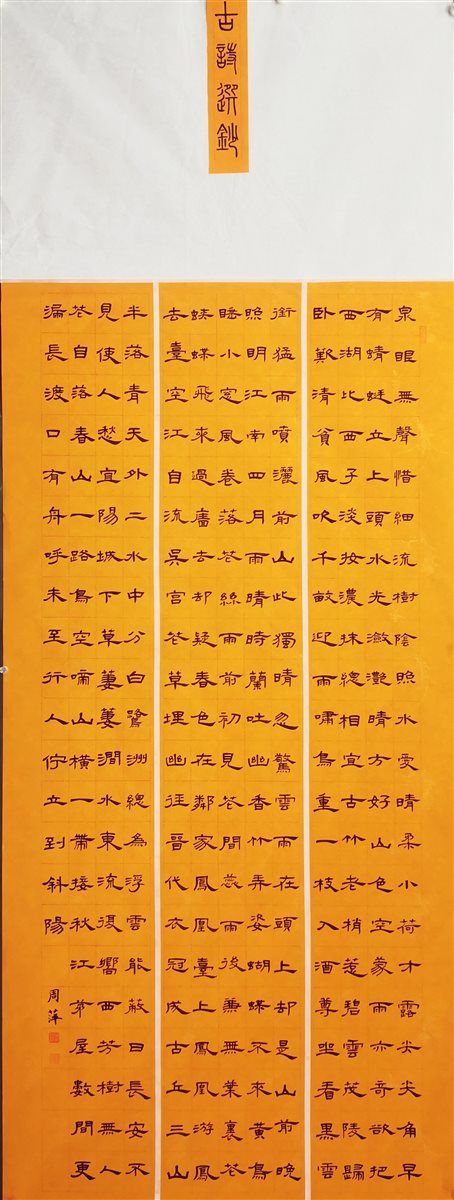 古詩選鈔
泉眼無聲惜細流樹陰照水愛晴柔小荷才露尖尖角早
有蜻蜓立上頭水光瀲灩晴方好山色空蒙雨亦奇欲把
西湖比西子淡妝濃抹總相宜古竹老梢惹碧雲茂陵歸
臥歎清貧風吹千畝迎雨嘯鳥重一枝入酒尊坐看黑雲
銜猛雨噴灑前山此獨晴忽驚雲雨在頭上却是山前晚
照明江南四月雨晴時蘭吐幽香竹弄姿蝴蝶不來黃鳥
睡小窓風卷落花絲雨前初見花間蕊雨後兼無葉裏花
蛺蝶飛來過廧去却疑春色在鄰家鳳凰臺上鳳凰游鳳
去臺空江自流吳宮花草埋幽徑晉代衣冠成古丘三山
半落青天外二水中分白鷺洲總為浮雲能蔽日長安不
見使人愁宜陽城下草萋萋澗水東流復嚮西芳樹無人
花自落春山一路鳥空啼山橫一帶接秋江茅屋數間更
漏長渡口有舟呼未至行人佇立到斜陽
周萍